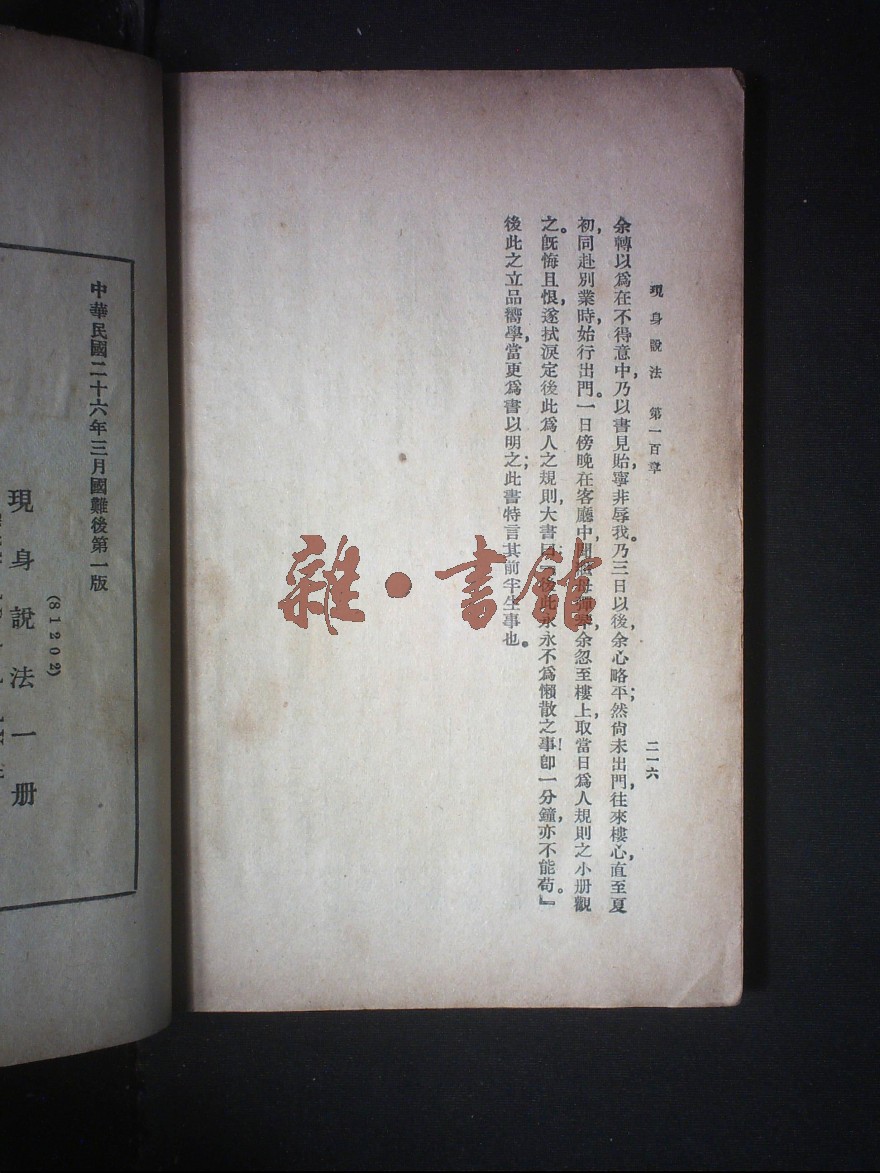 現身說法　第一百章
二一六
余轉以爲在不得意中，乃以書見貽，寧非辱我。乃三日以後，余心略平；然尙未出門，往來樓心，直至夏
初，同赴別業時，始行出門。一日傍晚在客廳中，聞 余忽至樓上，取當日爲人規則之小册觀
之。旣悔且恨，遂拭淚定後此爲人之規則，大書曰 後此永永不爲懶散之事！卽一分鐘，亦不能苟。』
後此之立品嚮學，當更爲書以明之；此書特言其前半生事也。
中華民國二十六年三月國難後第一版
(81202)
現身說法一册
雜·書館